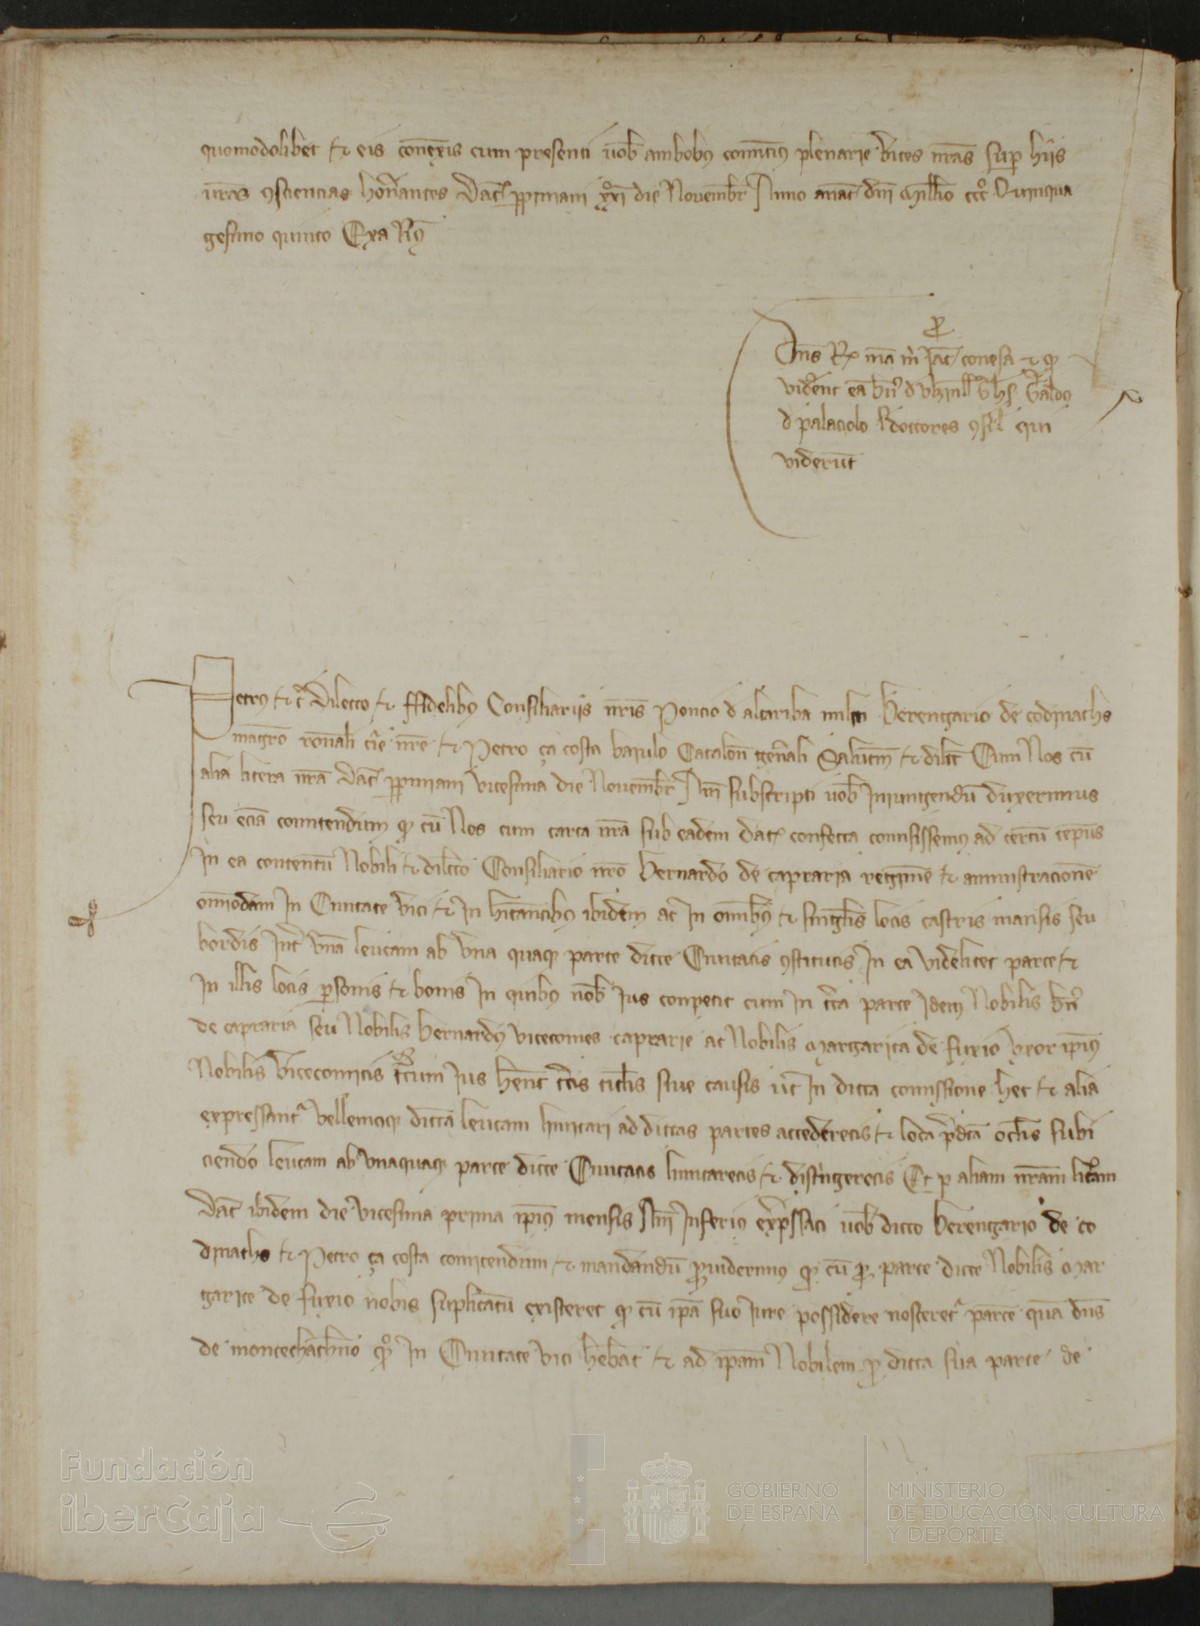 quomodolibet et eis conexis cum presenti vob ambobus comitimus plenarie vices nras sup hijs
vras consciencias honerantes Dat ppiniani xxi die Novembr Anno a nat dni Millo ccc Quinqua
gesimo quinto Exa Rus
p
Dns Rex ma m Jac conesa et p
viderent ea Bn d
d palaciolo doctores qui
viderunt
Petrus etc Dilecto et ffidelibus Consiliariis nris Poncio d altariba militi Berengario de codinachs
magro ronali Cie nre et Petro ça costa baiulo Catalon genali Salutem et dilect Cum Nos cu
alia litera nra dat ppiniani vicesima die Novembr Ann subscripti vob Iniungendu duxerimus
seu ecia comitendum q cu Nos cum carta nra sub eadem dat confecta comisissemus ad certu tepus
In ea contentu Nobili et dilecto Consiliario nro Bernardo de capraria regime et aministracione
omimodam In Civitate Vici et In hitantibus ibidem ac In omibus et singlis locis castris mansis seu
bordis Int una leucam ab una quaque parte dicte Civitatis constitutis In ea videlicet parte et
In illis locis psonis et bonis In quibus nob Ius conpetit cum In cta parte Idem Nobilis bn
de capraria seu Nobilis Bernardus vicecomes caprarie ac Nobilis Margarita de fuxio uxor ipius
Nobilis Vicecomitis Ius hent ctis titlis sive causis ut In dicta comissione hec et alia
expressant vellemusque dicta leucam limitari ad dictas partes accederetis et loca pdca oclis subi
ciendo leucam ab unaquaque parte dicte Civitatis limitaretis et distingeretis Et p aliam nram litam
Dat ibidem die vicesima prima ipius mensis Ann Inferius expssati vob dicto Berengario de co
dinachs et Petro ça costa comitendum et mandandu pviderimus q cu p parte dicte Nobilis Mar
garite de fuxio nobis suplicatu existeret q cu ipa suo Iure possidere nosceret parte qua dns
de montechatheno q In Civitate vici hebat et ad ipam Nobilem p dicta sua parte de
Fundación
iberCaja
GOBIERNO
DE ESPAÑA
MINISTERIO
DE EDUCACIÓN, CULTURA
Y DEPORTE